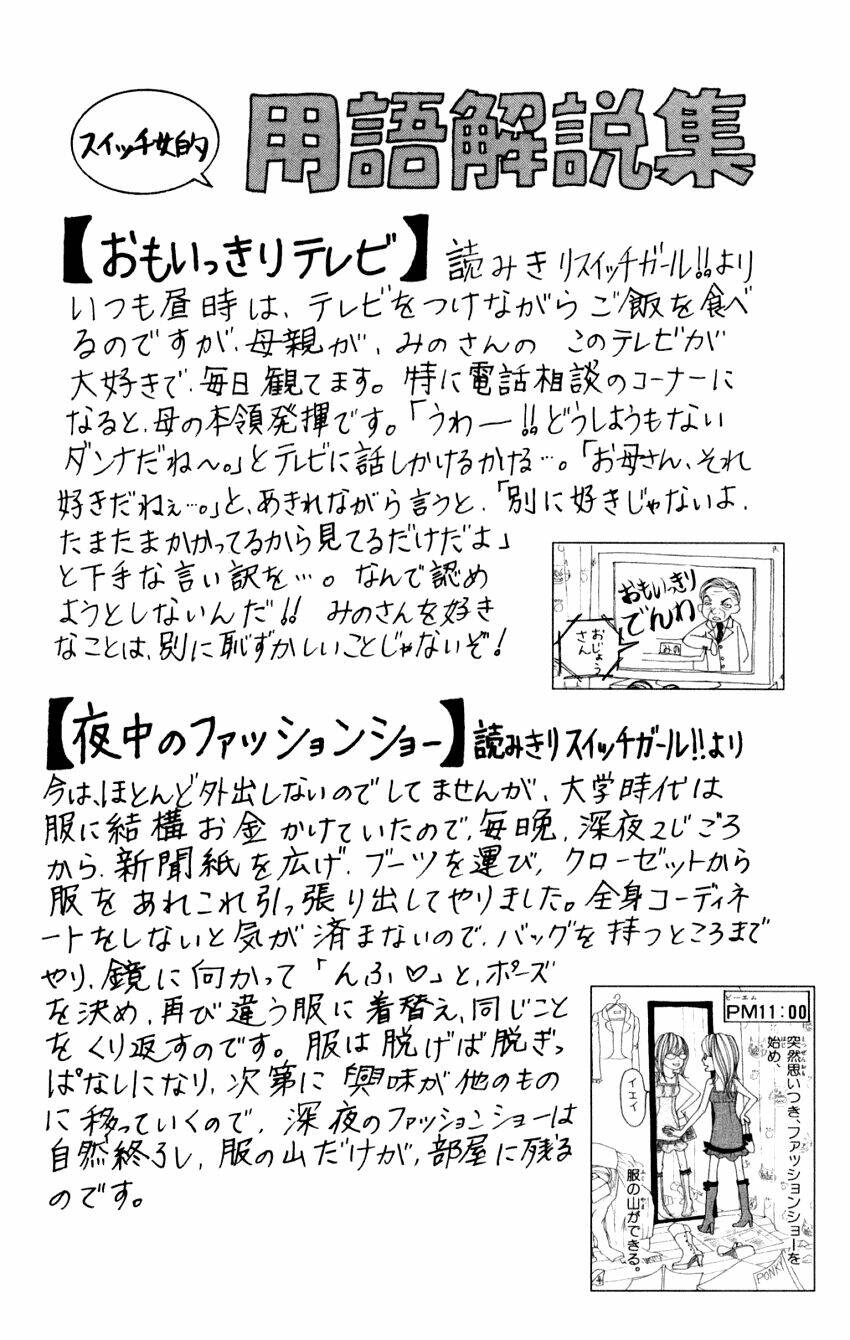 スイッチ女的
用語解説集
【おもいっきりテレビ】 読みきりスイッチガール!!より
いつも昼時は、テレビをつけながらご飯を食べ
るのですが、母親が、みのさんの このテレビが
大好きで、毎日観てます。特に電話相談のコーナーに
なると、母の本領発揮です。「うわー!!どうしようもない
ダンナだね〜。」とテレビに話しかけるかける…。「お母さん、それ
好きだねぇ…。」と、あきれながら言うと、「別に好きじゃないよ、
たまたまかかってるから見てるだけだよ」
と下手な言い訳を…。なんで認め
ようとしないんだ!! みのさんを好き
なことは、別に恥ずかしいことじゃないぞ!
おもいっきり
でんわ
おじょう
さん
みの
【夜中のファッションショー】読みきりスイッチガール!!より
今は、ほとんど外出しないのでしてませんが、大学時代は
服に結構お金かけていたので、毎晩、深夜2じごろ
から、新聞紙を広げ、ブーツを運び、クローゼットから
服をあれこれ引っ張り出してやりました。全身コーディネ
ートをしないと気が済まないので、バッグを持つところまで
やり、鏡に向かって「んふ♡」と、ポーズ
を決め、再び違う服に着替え、同じこと
をくり返すのです。服は脱げば脱ぎっ
ぱなしになり、次第に興味が他のもの
に移っていくので、深夜のファッションショーは
自然終了し、服の山だけが、部屋に残る
のです。
ピーエム
PM11:00
突然思いつき、ファッションショーを
始め、
イエイ
服の山ができる。
PONKY